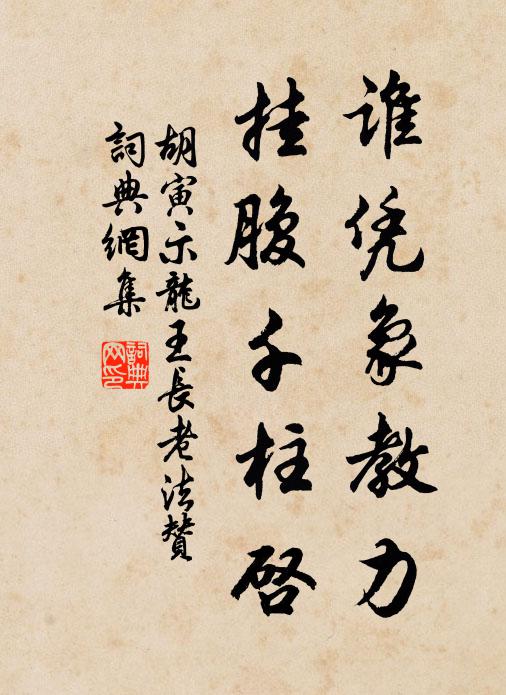 谁凭象教力
挂腹千柱启
胡寅示龍王長老法贊
詞典網集
詞典网印